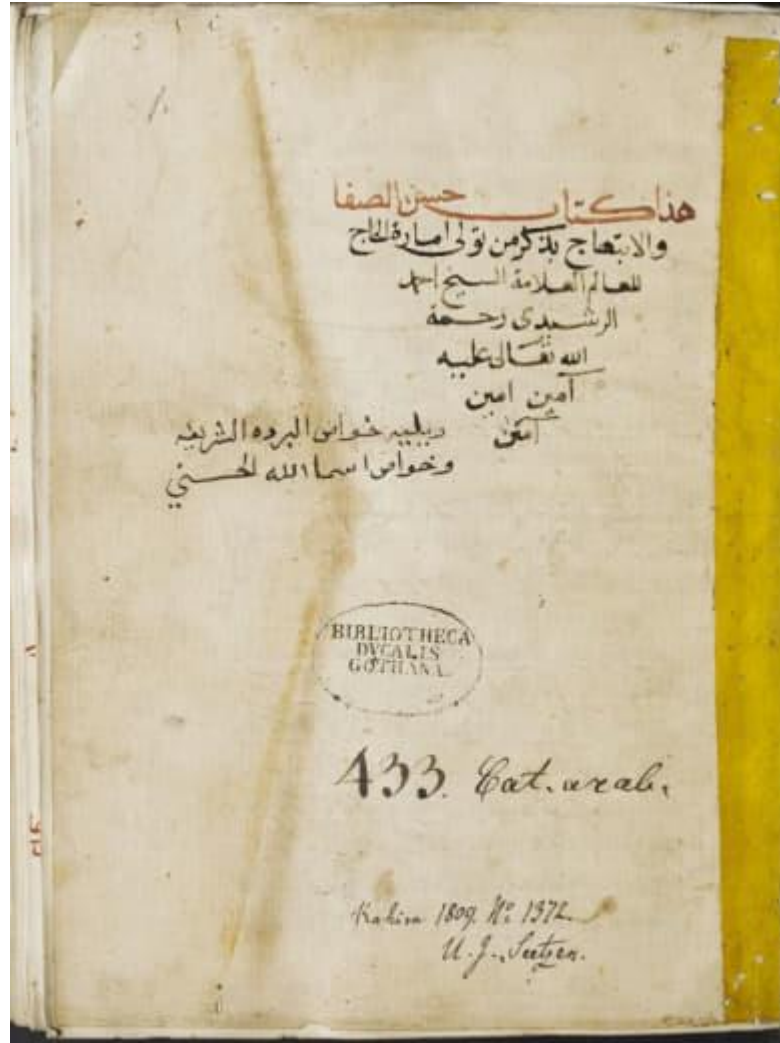 هذا كتاب حسن الصفا
والابتهاج بذكر من تولى امارة الحاج
للعالم العلامة الشيخ احمد
الرشيدى رحمة
الله تعالى عليه
آمين امين
آمين
ويليه خواص البرده الشريفه
وخواص اسما الله الحسني
BIBLIOTHECA
DVCALIS
GOTHANA.
433. Cat. arab.
Kahira 1809. No 1372.
U. J. Seetzen.